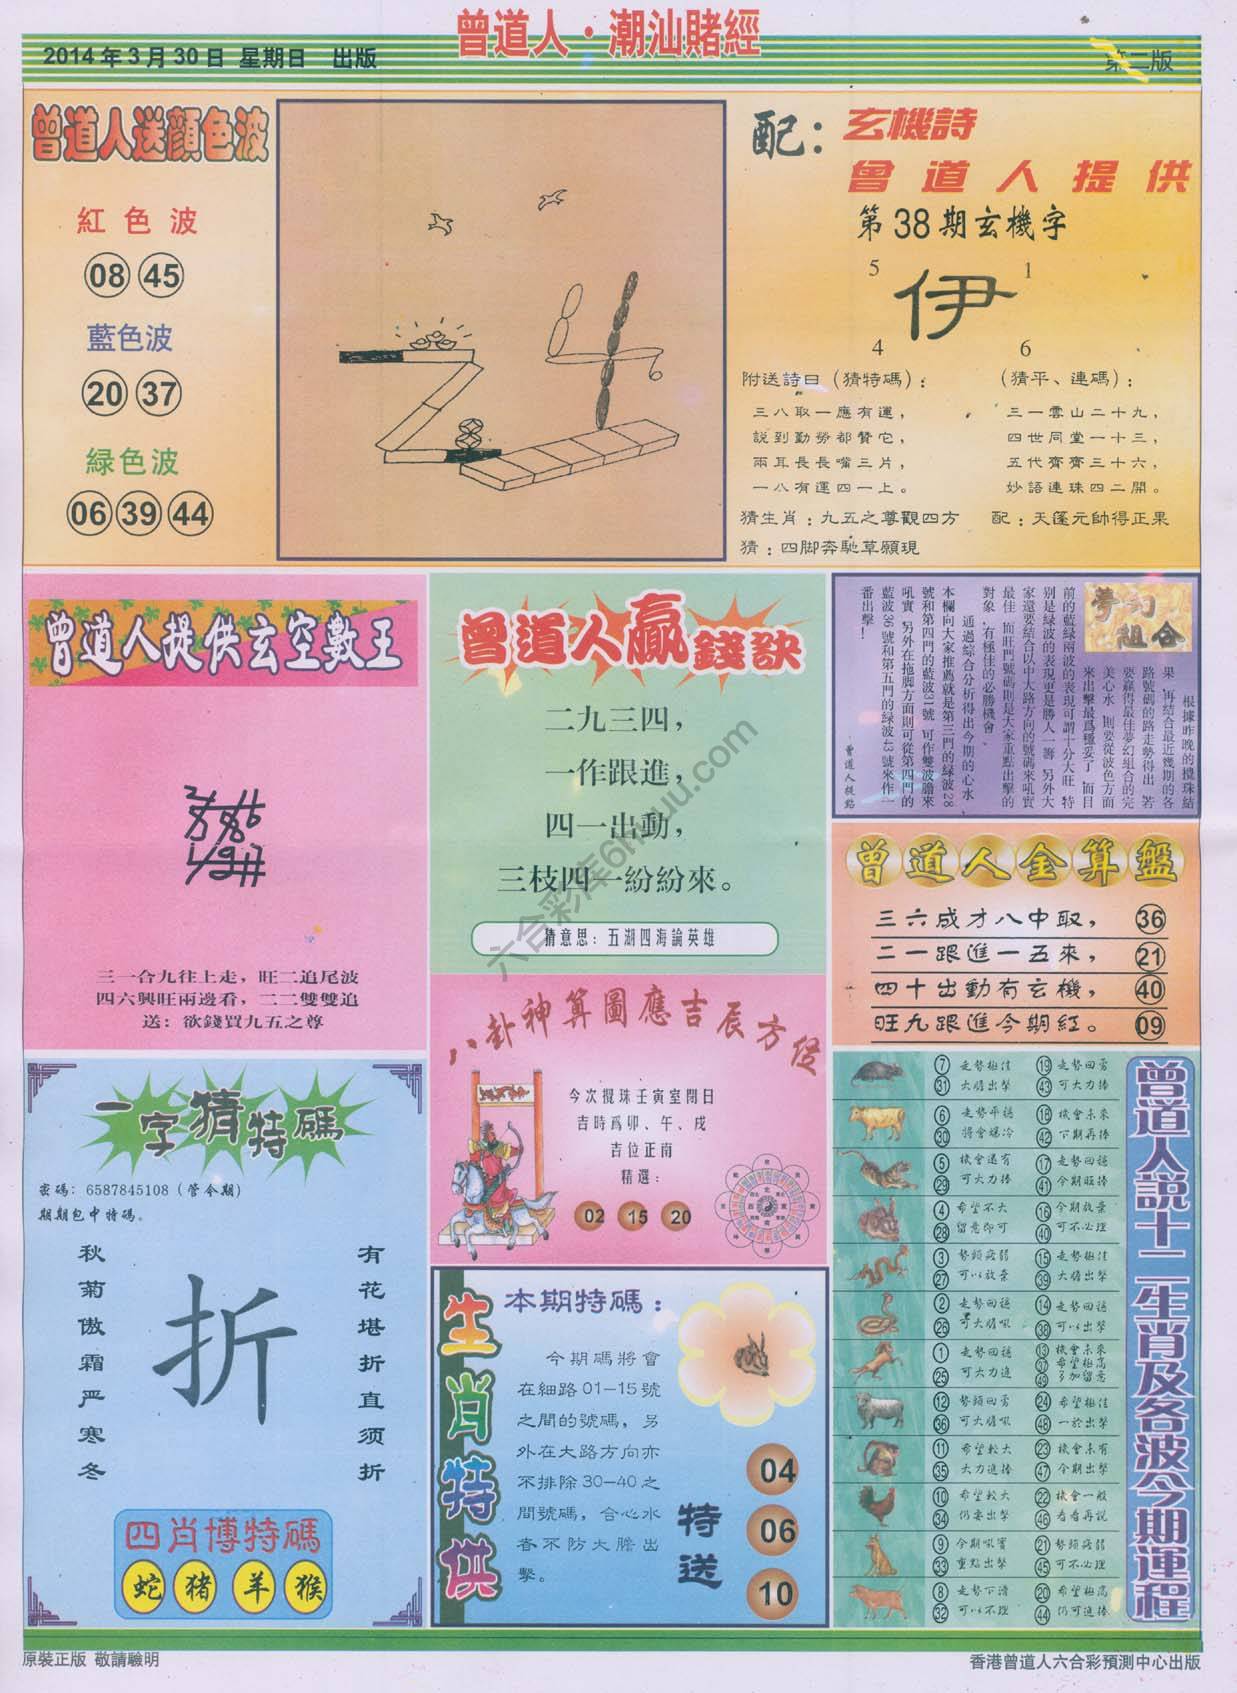 曾道人·潮汕賭經
2014年3月30日 星期日 出版
第二版
曾道人送顏色波
紅色波
08 45
藍色波
20 37
綠色波
06 39 44
配:
玄機詩
曾道人提供
第38期玄機字
5 1
伊
4 6
附送詩曰(猜特碼):
三八取一應有運,
說到勤勞都贊它,
兩耳長長嘴三片,
一八有運四一上。
(猜平、連碼):
三一雲山二十九,
四世同堂一十三,
五代齊齊三十六,
妙語連珠四二開。
猜生肖:九五之尊觀四方
配:天蓬元帥得正果
猜:四脚奔馳草願現
曾道人提供玄空數王
三一合九往上走,旺二追尾波
四六興旺兩邊看,二二雙雙追
送:欲錢買九五之尊
曾道人贏錢訣
二九三四,
一作跟進,
四一出動,
三枝四一紛紛來。
猜意思:五湖四海論英雄
六合彩库6huu.com
夢幻組合
根據昨晚的攪珠結
果,再結合最近幾期的各
路號碼的路走勢得出,若
要贏得最佳夢幻組合的完
美心水,則要從波色方面
來出擊最爲穩妥了,而目
前的藍綠兩波的表現可謂十分大旺,特
別是綠波的表現更是勝人一籌,另外大
家還要結合以中大路方向的號碼來吼實
最佳,而旺門號碼則是大家重點出擊的
對象,有極佳的必勝機會。
通過綜合分析得出今期的心水
本欄向大家推薦就是第三門的綠波28
號和第四門的藍波31號,可作雙波膽來
吼實,另外在拖脚方面則可從第四門的
藍波36號和第五門的綠波43號來作一
番出擊!
曾道人提點
曾道人金算盤
三六成才八中取, 36
二一跟進一五來, 21
四十出動有玄機, 40
旺九跟進今期紅。 09
八卦神算圖應吉辰方位
今次攪珠壬寅室閉日
吉時爲卯、午、戌
吉位正南
精選:
02 15 20
一字猜特碼
密碼:6587845108(管令期)
期期包中特碼。
秋菊傲霜严寒冬
折
有花堪折直须折
四肖博特碼
蛇 猪 羊 猴
生肖特供
本期特碼:
今期碼將會
在細路01-15號
之間的號碼,另
外在大路方向亦
不排除30-40之
間號碼,合心水
者不防大膽出
擊。
特送
04
06
10
曾道人説十二生肖及各波今期運程
7 走勢極佳 19 走勢回落
31 大膽出擊 43 可大力捧
6 走勢平穩 18 機會未來
30 將會爆冷 42 下期再捧
5 機會還有 17 走勢回穩
29 可大力捧 41 今期旺捧
4 希望不大 16 今期放棄
28 留意即可 40 可不必理
3 勢頭疲弱 15 走勢極佳
27 可以放棄 39 大膽出擊
2 走勢回穩 14 走勢回穩
26 可大膽吼 38 可以出擊
1 走勢回穩 13 機會未來
25 可大力追 37 希望極高
49 多加留意
12 勢頭回落 24 希望極佳
36 可大膽吼 48 一於出擊
11 希望較大 23 機會未有
35 大力追捧 47 今期出擊
10 希望較大 22 機會一般
34 仍要出擊 46 看看再說
9 今期吼實 21 勢頭疲弱
33 重點出擊 45 可不必理
8 走勢下滑 20 希望極高
32 可以不理 44 仍可追捧
原裝正版 敬請驗明
香港曾道人六合彩預測中心出版